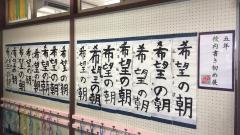 五年
校内書き初め展
希望の朝
希望の朝
希望の朝
希望の朝
希望の朝
希望の朝
希望の朝
希望の朝
希望の朝